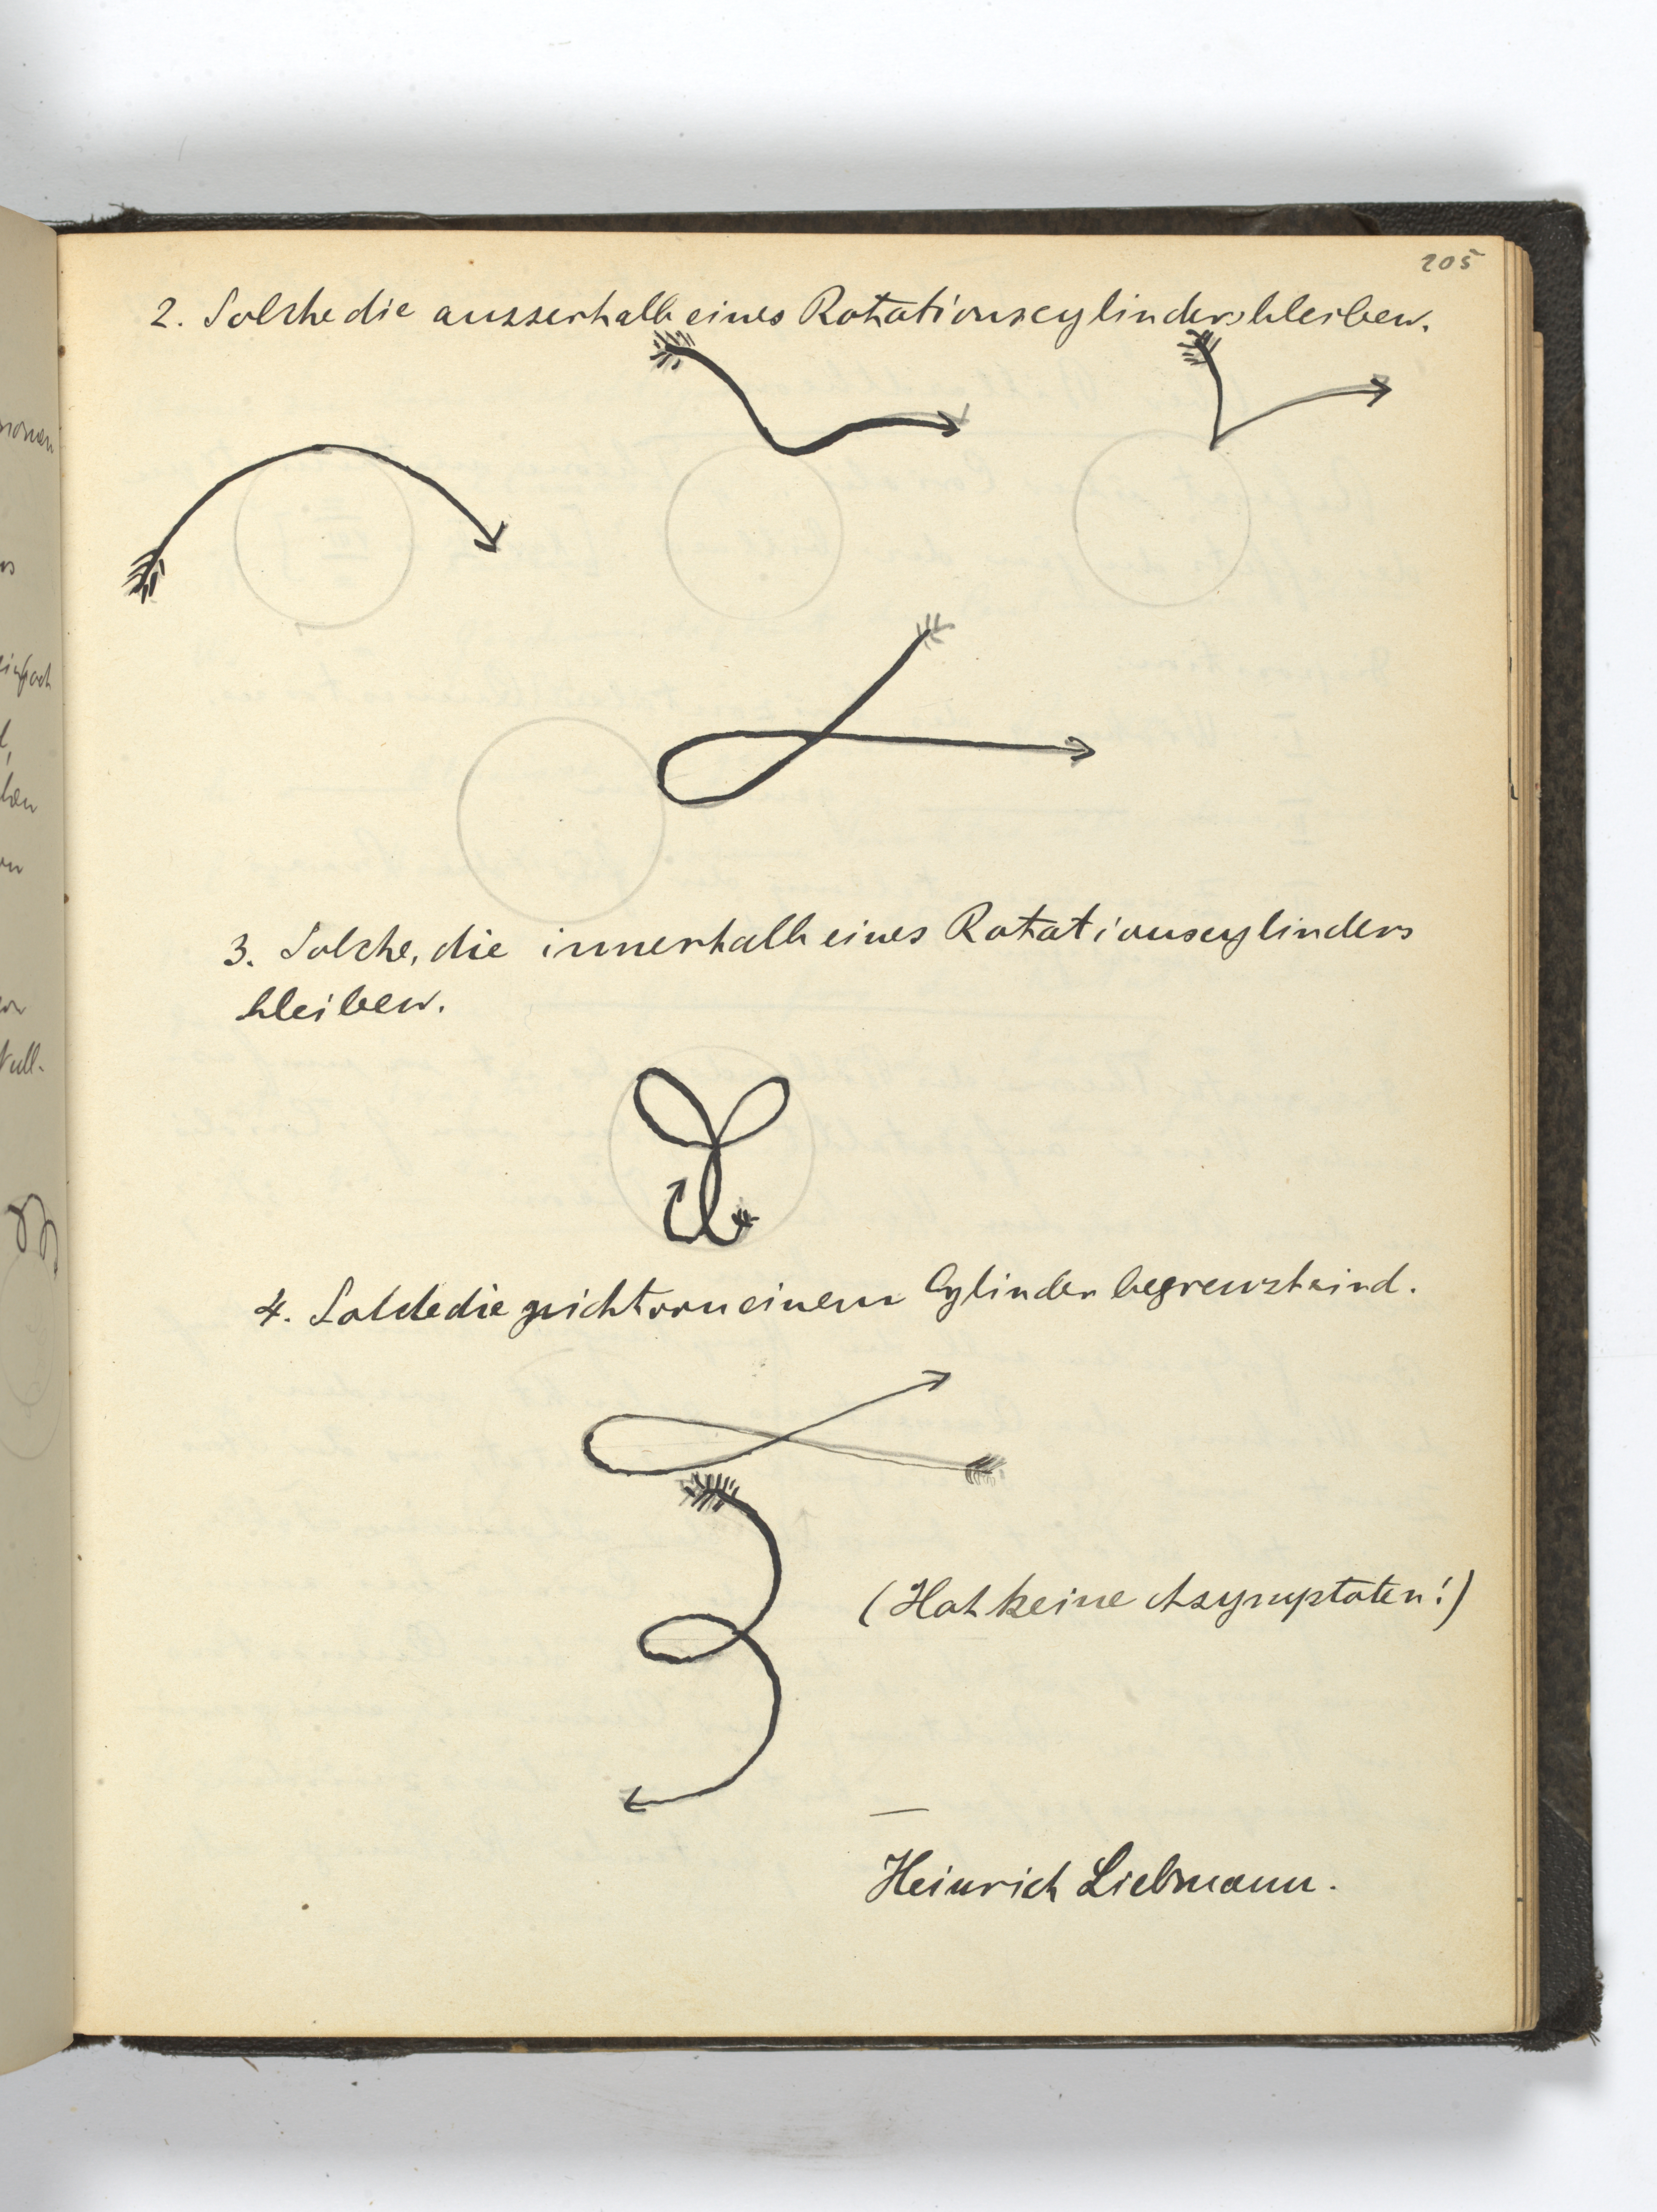 205
2. Solche die ausserhalb eines Rotationscylinders bleiben.
3. Solche, die innerhalb eines Rotationscylinders
bleiben.
4. Solche die nicht von einem Cylinder begrenzt sind.
(Hat keine Asymptoten!)
Heinrich Liebmann.